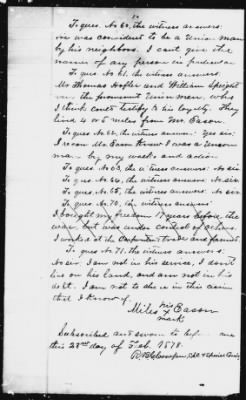 To ques. No. 60, the witness answers:
he was considered to be a Union man
by his neighbors. I can't give the
names of any person in particular.
To ques. No. 61, the witness answers
Mr Thomas and William Speight
two prominent Union men, who
I think can testify to his loyalty. They
live 4 or 5 miles from Mr. Eason.
To ques. No. 62, the witness answers: Yes sir;
I recon Mr. Eason knew I was a Union
man by my walk and action
To ques. No. 63, the witness answers: No sir.
To ques. No. 64, the witness answers, No sir
To ques. No. 65, the witness answers, No sir
To ques. No. 70, the witness answers:
I bought my freedom 17 years before the
war, but was under control of others.
I worked at the Carpenters trade and farmed
To ques. No. 71, the witness answers
No sir, I am not in his service, I don't
live on his land, and am not in his
debt. I am not to share in this claim
that I know of.
his
Miles x Eason
mark
Subscribed and sworn to before
me this 23rd day of Feb. 1878.